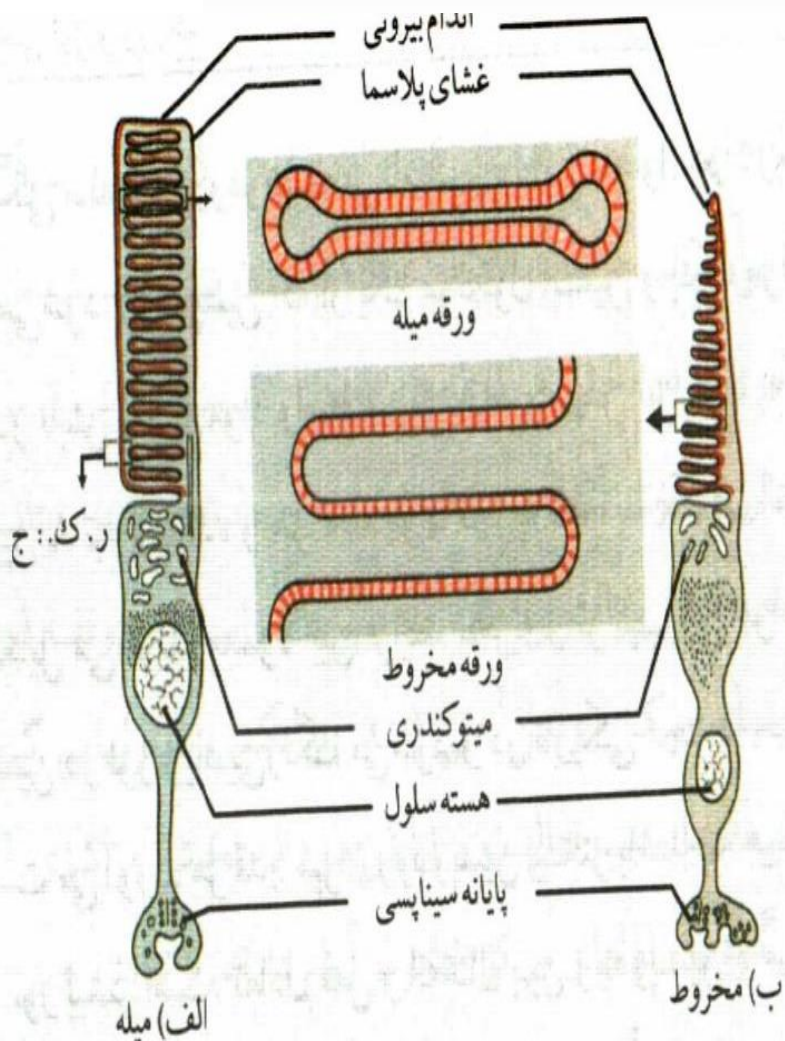 اندام بیرونی
غشای پلاسما
ورقه میله
ر. ک.: ج
ورقه مخروط
میتوکندری
هسته سلول
پایانه سیناپسی
ب) مخروط
الف) میله